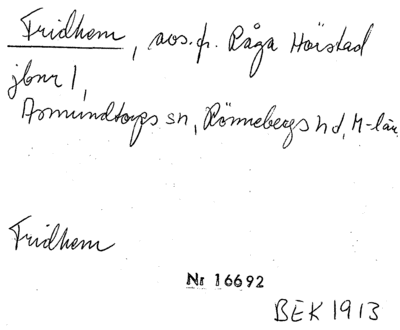 Fridhem, avs. fr. Råga Hörstad
jbnr 1,
Asmundtorps sn, Rönnebergs hd, M-län
Fridhem
Nr 16692
BEK 1913